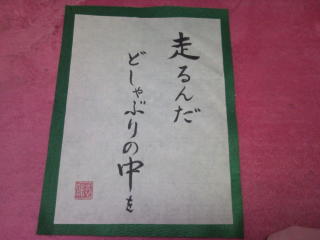 走るんだ
どしゃぶりの中を